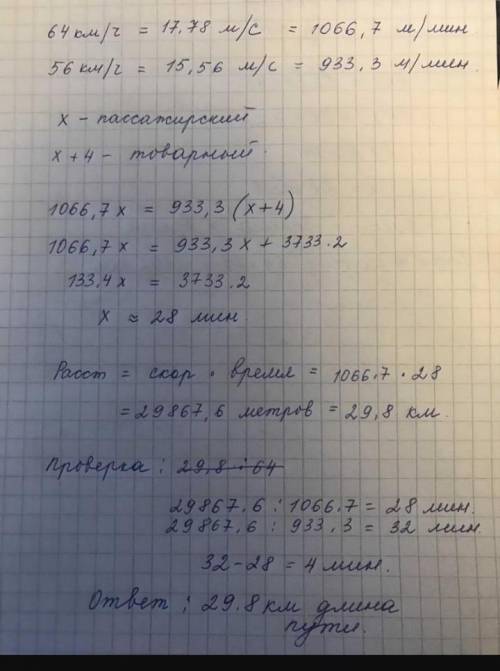 64 км/ч = 17,78 м/с = 1066,7 м/мин
56 км/ч = 15,56 м/с = 933,3 м/мин.
x - пассажирский
x+4 - товарный.
1066,7x = 933,3 (x+4)
1066,7x = 933,3x + 3733.2
133,4x = 3733.2
x ≈ 28 мин
Расст = скор · время = 1066.7 · 28
= 29867,6 метров = 29,8 км.
Проверка: 29,8 : 64
29867.6 : 1066.7 = 28 мин.
29867,6 : 933,3 = 32 мин.
32-28 = 4 мин.
Ответ: 29.8 км длина
пути.